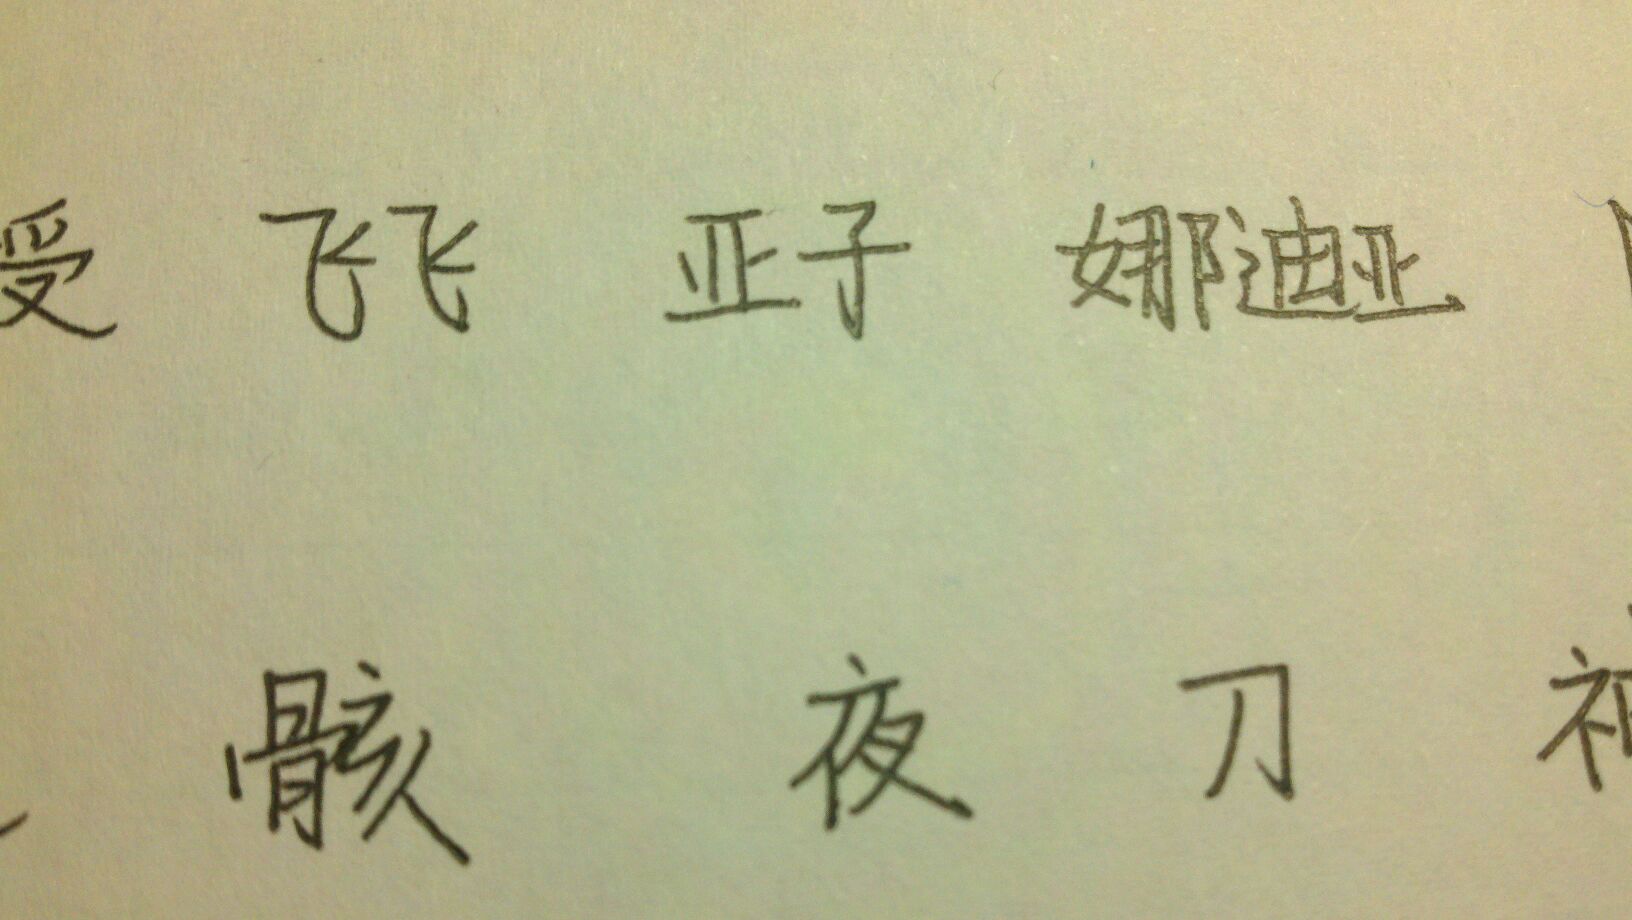 受 飞飞 亚子 娜迪亚
骸 夜 刀